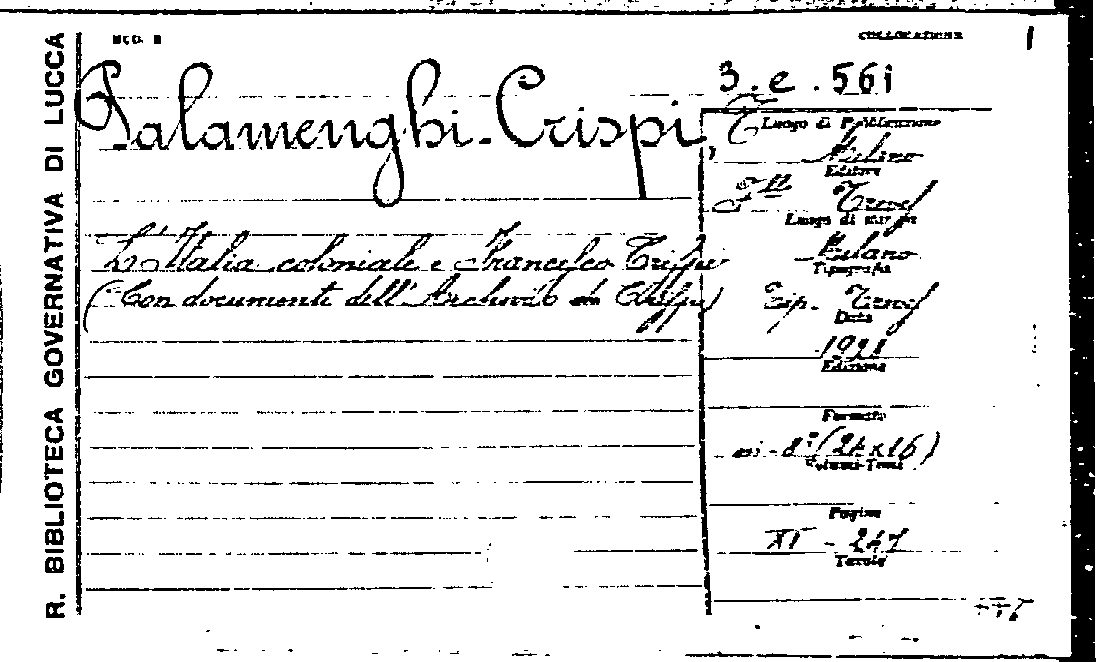 R. BIBLIOTECA GOVERNATIVA DI LUCCA
MOD. B
COLLOCAZIONE
1
3.e.561
Palamenghi-Crispi, T
L'Italia coloniale e Francesco Crispi
(Con documenti dell'Archivio Crispi)
Luogo di Pubblicazione
Milano
Editore
F.lli Treves
Luogo di stampa
Milano
Tipografia
Tip. Treves
Data
1928
Edizione
Formato
in-8° (24x16)
Volumi-Tomi
Pagine
XI - 247
Tavole